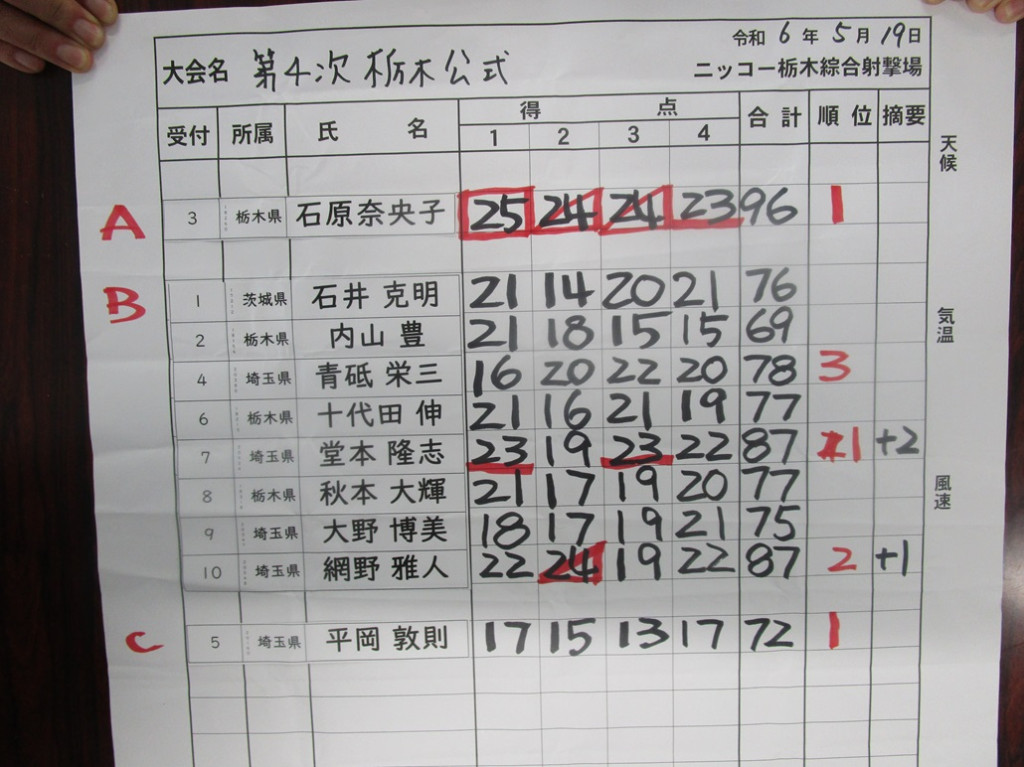 令和 6 年 5 月 19 日
大会名 第4次 栃木公式 ニッコー栃木綜合射撃場
受付 所属 氏 名 得 点 合計 順位 摘要
1 2 3 4
天候
A 3 栃木県 石原奈央子 25 24 24 23 96 1
B 1 茨城県 石井 克明 21 14 20 21 76
2 栃木県 内山 豊 21 18 15 15 69
気温
4 埼玉県 青砥 栄三 16 20 22 20 78 3
6 栃木県 十代田 伸 21 16 21 19 77
7 埼玉県 堂本 隆志 23 19 23 22 87 1 +2
8 栃木県 秋本 大輝 21 17 19 20 77
風速
9 埼玉県 大野 博美 18 17 19 21 75
10 埼玉県 網野 雅人 22 24 19 22 87 2 +1
C 5 埼玉県 平岡 敦則 17 15 13 17 72 1